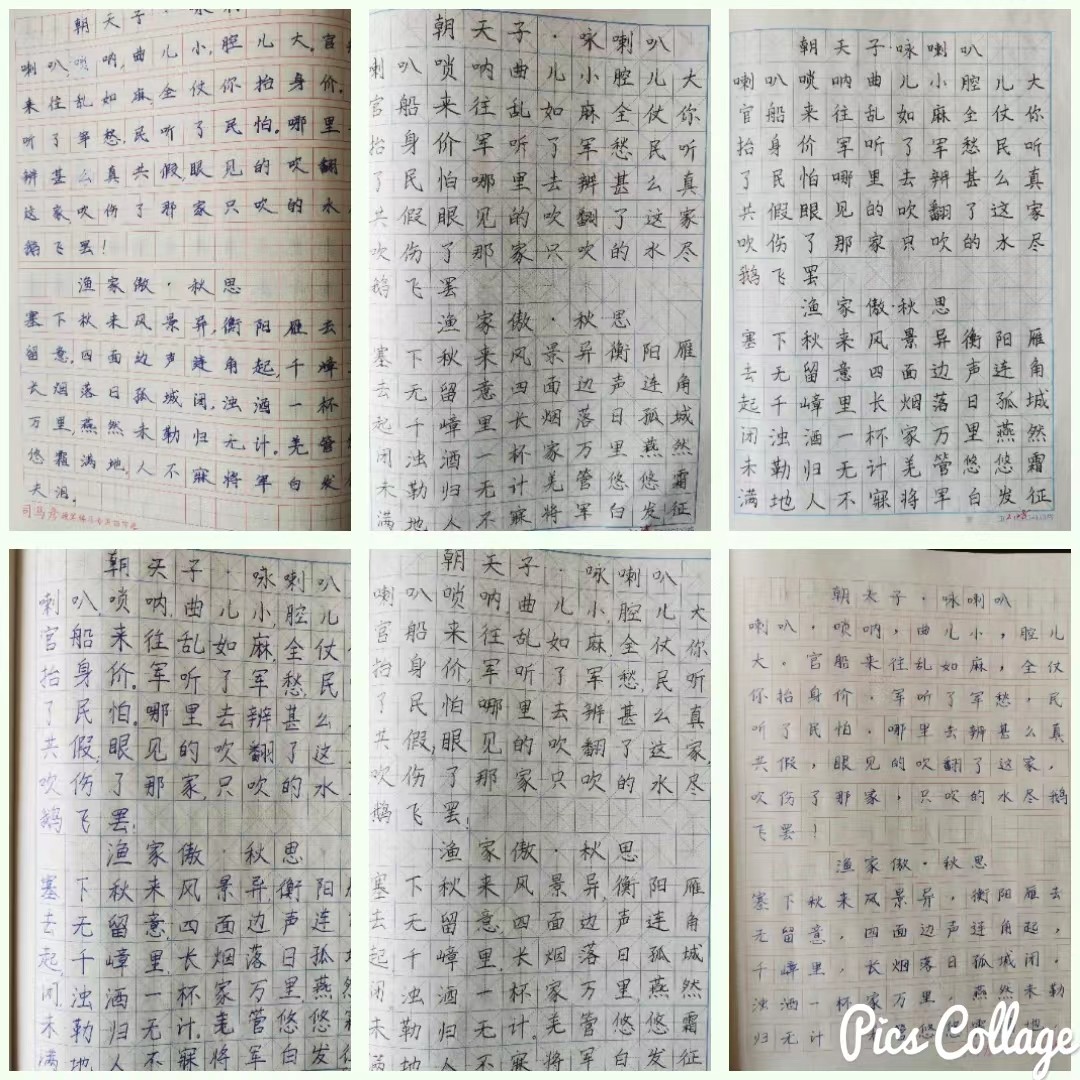 朝天子
喇叭,唢呐,曲儿小,腔儿大.官
来往乱如麻,全仗你抬身价.
听了军愁,民听了民怕.哪里
辨甚么真共假,眼见的吹翻
这家吹伤了那家只吹的水
鹅飞罢!
渔家傲·秋思
塞下秋来风景异,衡阳雁去
留意.四面边声连角起,千嶂
长烟落日孤城闭,浊酒一杯
万里,燕然未勒归无计.羌管
悠霜满地,人不寐将军白发
夫泪.
司马彦
朝天子·咏喇叭
喇叭唢呐曲儿小腔儿大
官船来往乱如麻全仗你
抬身价军听了军愁民听
了民怕哪里去辨甚么真
共假眼见的吹翻了这家
吹伤了那家只吹的水尽
鹅飞罢
渔家傲·秋思
塞下秋来风景异衡阳雁
去无留意四面边声连角
起千嶂里长烟落日孤城
闭浊酒一杯家万里燕然
未勒归无计羌管悠悠霜
满地人不寐将军白发征
朝天子·咏喇叭
喇叭唢呐曲儿小腔儿大
官船来往乱如麻全仗你
抬身价军听了军愁民听
了民怕哪里去辨甚么真
共假眼见的吹翻了这家
吹伤了那家只吹的水尽
鹅飞罢
渔家傲·秋思
塞下秋来风景异衡阳雁
去无留意四面边声连角
起千嶂里长烟落日孤城
闭浊酒一杯家万里燕然
未勒归无计羌管悠悠霜
满地人不寐将军白发征
朝天子·咏喇叭
喇叭,唢呐,曲儿小,腔儿
官船来往乱如麻,全仗
抬身价.军听了军愁,民
了民怕.哪里去辨甚么
共假,眼见的吹翻了这
吹伤了那家,只吹的水
鹅飞罢!
渔家傲·秋思
塞下秋来风景异,衡阳
去无留意,四面边声连
起,千嶂里,长烟落日孤
闭.浊酒一杯家万里,燕然
未勒归无计.羌管悠悠
满地人不寐将军白发
朝天子·咏喇叭
喇叭唢呐,曲儿小,腔儿大
官船来往乱如麻,全仗你
抬身价,军听了军愁,民听
了民怕哪里去辨甚么真
共假,眼见的吹翻了这家,
吹伤了那家只吹的水尽
鹅飞罢!
渔家傲·秋思
塞下秋来风景异,衡阳雁
去无留意,四面边声连角
起,千嶂里,长烟落日孤城
闭.浊酒一杯家万里,燕然
未勒归无计.羌管悠悠霜
满地人不寐将军白发征
朝天子·咏喇叭
喇叭,唢呐,曲儿小,腔儿
大.官船来往乱如麻,全仗
你抬身价.军听了军愁,民
听了民怕.哪里去辨甚么真
共假,眼见的吹翻了这家,
吹伤了那家,只吹的水尽鹅
飞罢!
渔家傲·秋思
塞下秋来风景异,衡阳雁去
无留意,四面边声连角起,
千嶂里,长烟落日孤城闭.
浊酒一杯家万里,燕然未勒
归无计
Pics Collage